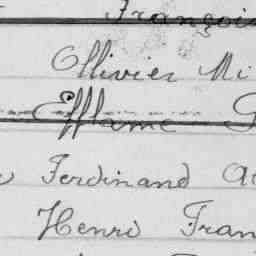 François
Ollivier Mi
Efflame
Ferdinand Au
Henri Fran